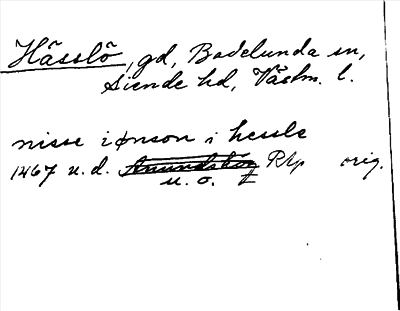 Hässlö, gd, Badelunda sn,
Siende hd, Västm. l.
nisse iønson i hessle
1467 u.d. Amundsköp Rhp orig.
u. o.